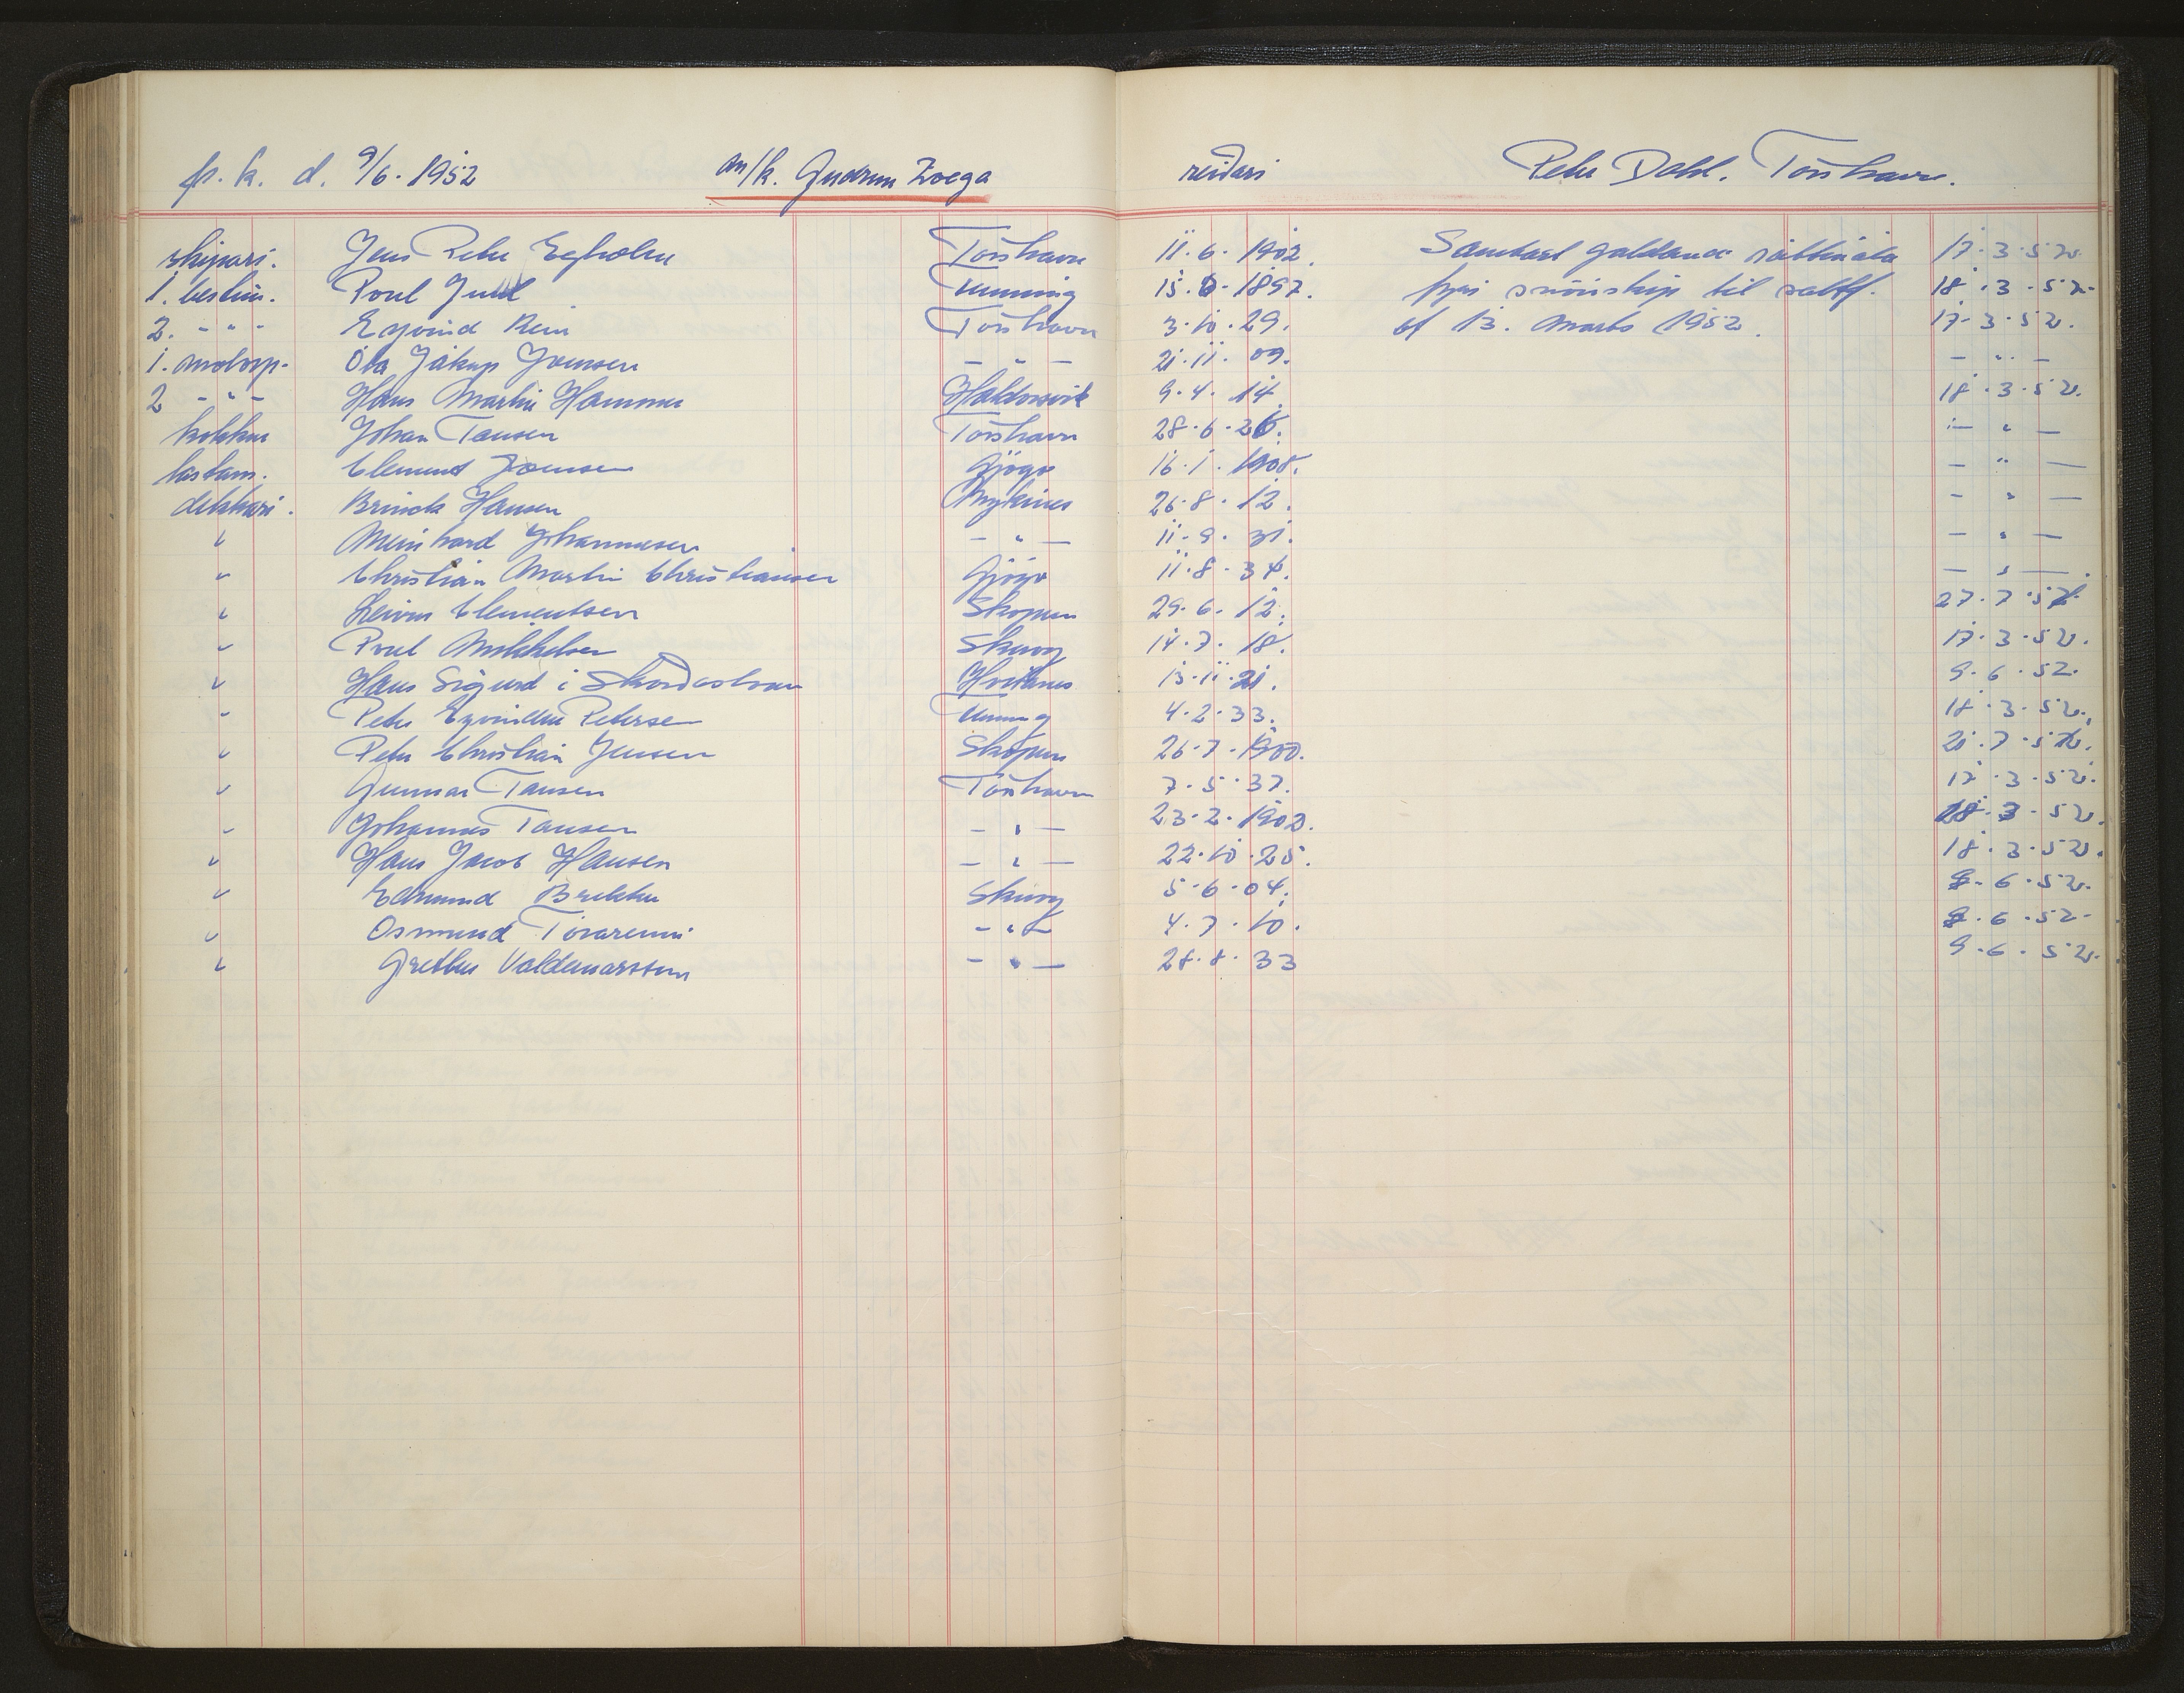 fr. k. d. 9/6. 1952 m/k. Gudrun Zoega reiðari Peter Dahl. Tórshavn.
skipari. Jens Peter Egholm Tórshavn 11.6.1902. Sambært galdandi sáttmála 17.3.52.
1. bestim. Poul Juul 15.6.1897. fyri snøriskip til saltf. 18.3.52.
2. - " - Eyvind Rein Tórshavn 3.10.29. af 13. marts 1952. 17.3.52.
1. motorp. Óla Jákup Joensen - " - 21.11.09. - " -
2 - " - Hans Martin Hammer Haldorsvik 9.4.14. 18.3.52.
kokkur Johan Tausen Tórshavn 28.6.26. - " -
lastam. Clement Joensen Gjógv 16.1.1908. - " -
dekkari. Brinck Hansen Mykines 26.8.12. - " -
" Meinhard Johannesen - " - 11.9.31. - " -
" Christian Martin Christiansen Gjógv 11.8.34. - " -
" Leivur Clementsen Skopun 29.6.12. 27.7.52.
" Poul Mikkelsen Skuvoy 14.7.18. 17.3.52.
" Hans Sigurd í Skorðastovu 13.11.21. 9.6.52.
" Peter Eyvindur Petersen 4.2.33. 18.3.52.
" Peter Christian Jensen Skopun 26.7.1900. 21.7.52.
" Gunnar Tausen Tórshavn 7.5.37. 17.3.52.
" Johannes Tausen - " - 23.2.1902. 18.3.52.
" Hans Jacob Hansen - " - 22.10.25. 18.3.52.
" Edmund Brekku Skuvoy 5.6.04. 9.6.52.
" Osmund Tórarenni - " - 4.7.10. 9.6.52.
" Grethur Valdemarssum - " - 28.8.33 9.6.52.